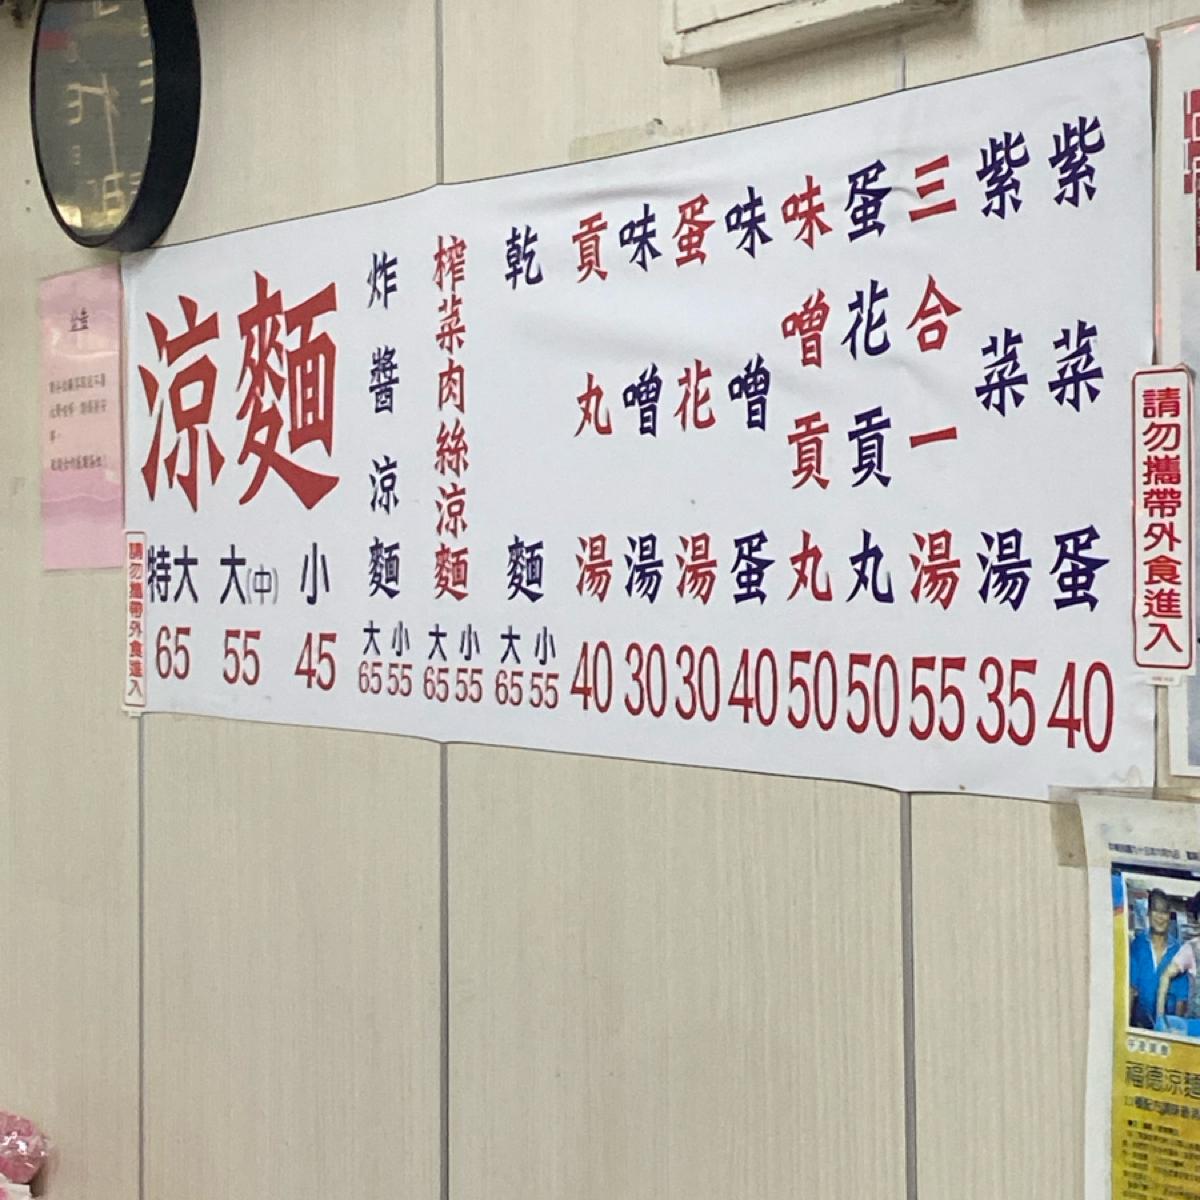 涼麵
特大 大(中) 小
65 55 45
炸醬涼麵
大 小
65 55
榨菜肉絲涼麵
大 小
65 55
乾麵
大 小
65 55
貢丸湯 40
味噌湯 30
蛋花湯 30
味噌蛋 40
味噌貢丸 50
蛋花貢丸 50
三合一湯 55
紫菜湯 35
紫菜蛋 40
請勿攜帶外食進入
請勿攜帶外食進入
公告
福德涼麵